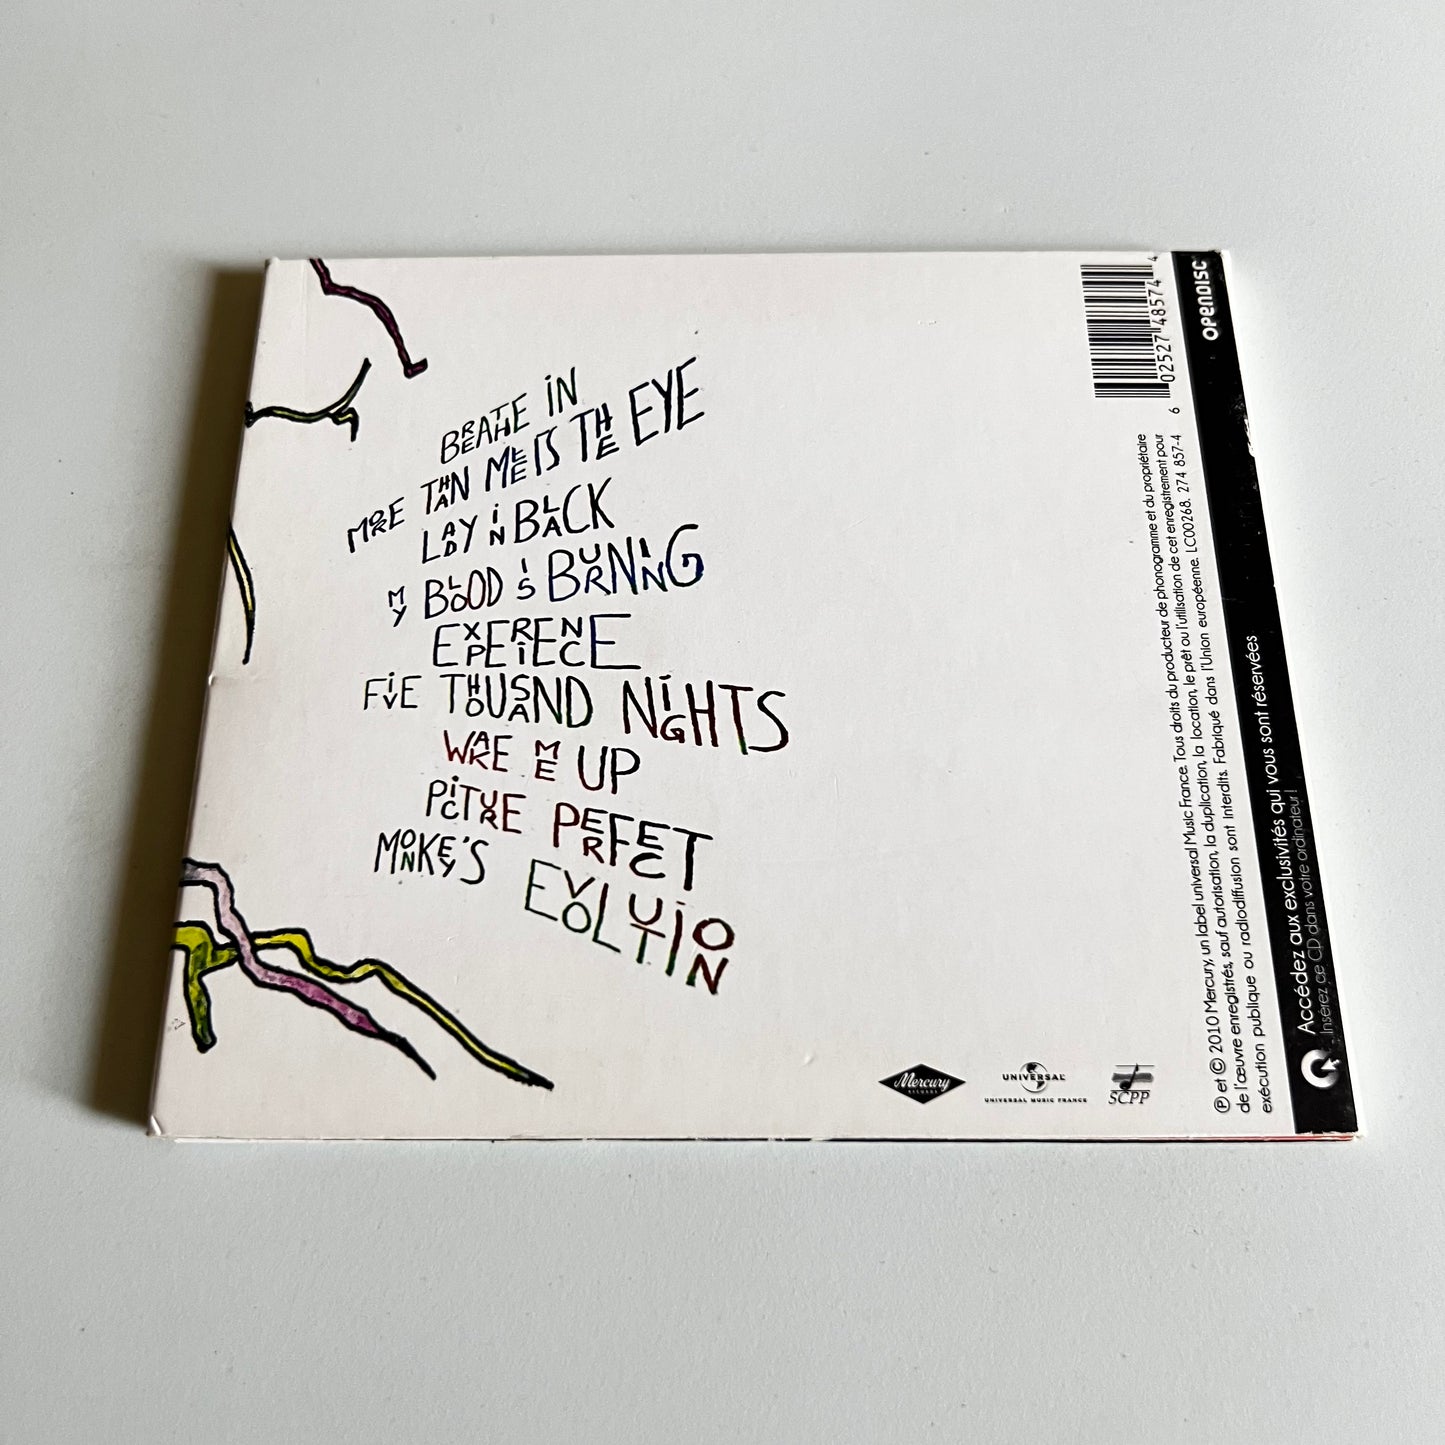 BREATHE IN
MORE THAN MEETS THE EYE
LADY IN BLACK
MY BLOOD IS BURNING
EXPERIENCE
FIVE THOUSAND NIGHTS
WAKE ME UP
PICTURE PERFECT
MONKEY'S EVOLUTION
Mercury
RECORDS
UNIVERSAL
UNIVERSAL MUSIC FRANCE
SCPP
6 02527 48574 4
℗ et © 2010 Mercury, un label universal Music France. Tous droits du producteur de phonogramme et du propriétaire
de l'œuvre enregistrés, sauf autorisation, la duplication, la location, le prêt ou l'utilisation de cet enregistrement pour
exécution publique ou radiodiffusion sont Interdits. Fabriqué dans l'Union européenne. LC00268. 274 857-4
Accédez aux exclusivités qui vous sont réservées
Insérez ce CD dans votre ordinateur !
OPENDISC